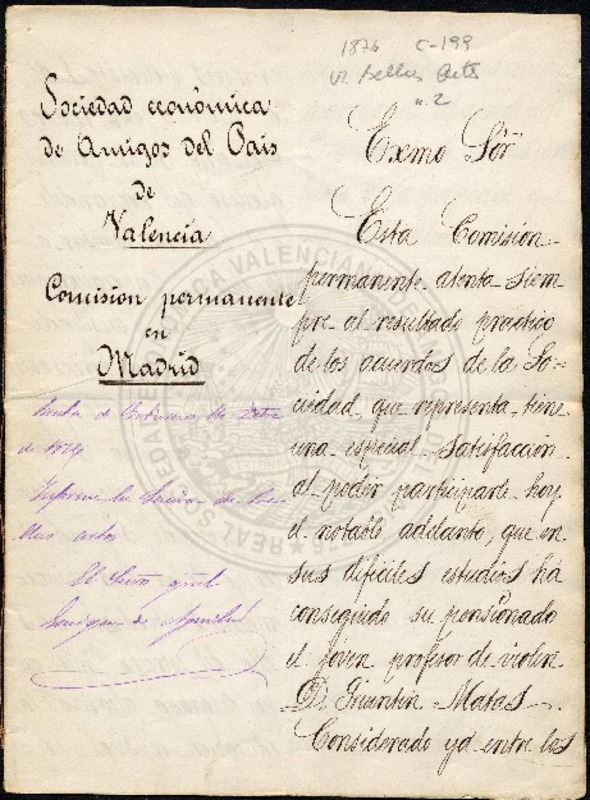 1876 C-199
VI Bellas Artes
n. 2
Sociedad económica
de Amigos del Pais
de
Valencia
Comision permanente
en
Madrid
Junta de Gobierno
de
Informe la Seccion de Be-
llas artes
El Srio gral
Exmo Sör
Esta Comision
permanente atenta siem
pre al resultado practico
de los acuerdos de la So=
ciedad, que representa tiene
una especial satisfacción
al poder participarle hoy
el notable adelanto, que en
sus dificiles estudios há
conseguido su pensionado
el joven profesor de violin
D. Quintin Matas.
Considerado yá entre los
REAL SOCIEDAD ECONOMICA VALENCIANA DE AMIGOS DEL PAIS 1776